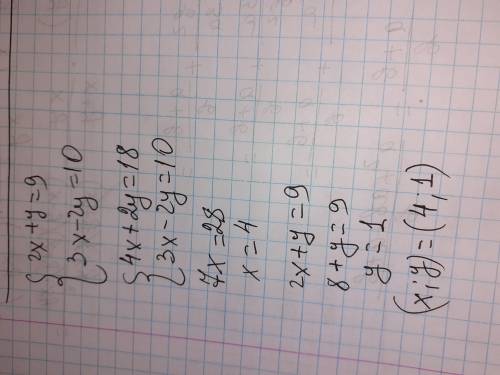 {2x+y=9
{3x-2y=10
{4x+2y=18
{3x-2y=10
7x=28
x=4
2x+y=9
8+y=9
y=1
(x;y)=(4,1)